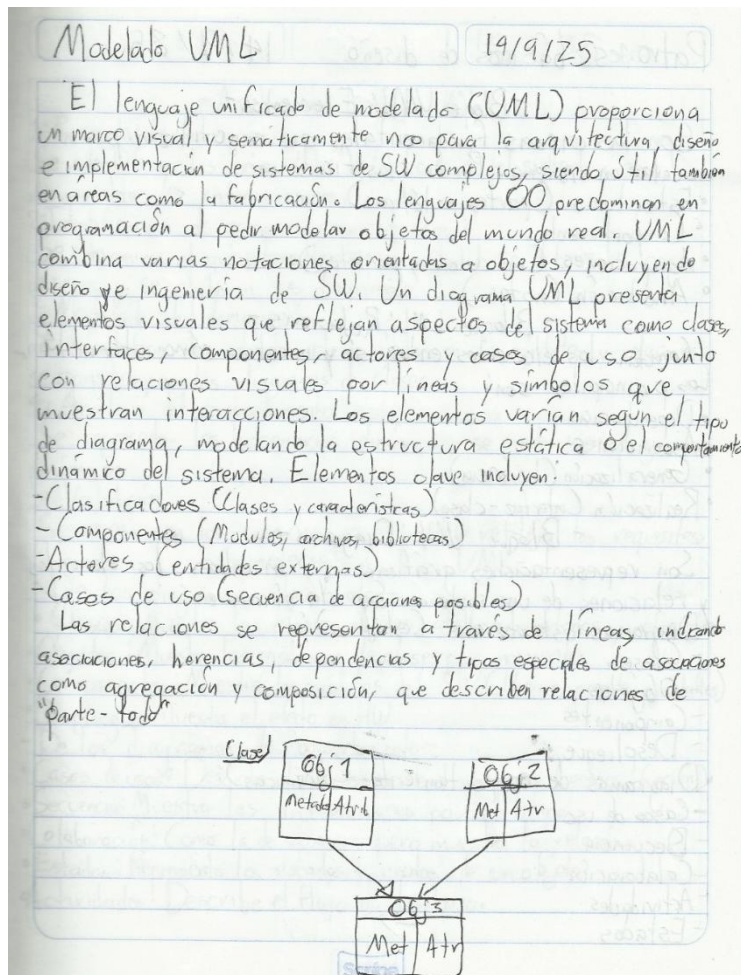 Modelado UML
19/9/25
El lenguaje unificado de modelado (UML) proporciona
un marco visual y semáticamente rico para la arquitectura, diseño
e implementación de sistemas de SW complejos, siendo útil también
en áreas como la fabricación. Los lenguajes OO predominan en
programación al pedir modelar objetos del mundo real. UML
combina varias notaciones orientadas a objetos, incluyendo
diseño e ingeniería de SW. Un diagrama UML presenta
elementos visuales que reflejan aspectos del sistema como clases,
interfaces, componentes, actores y casos de uso junto
con relaciones visuales por líneas y símbolos que
muestran interacciones. Los elementos varían según el tipo
de diagrama, modelando la estructura estática o el comportamiento
dinámico del sistema. Elementos clave incluyen.
-Clasificadores (Clases y características)
-Componentes (Modulos, archivos, bibliotecas)
-Actores (entidades externas)
-Casos de uso (secuencia de acciones posibles)
Las relaciones se representan a través de líneas, indicando
asociaciones, herencias, dependencias y tipos especiales de asociaciones
como agregación y composición, que describen relaciones de
"parte-todo"
Clase
Obj 1
Obj 2
Atrib
Met Atr
Obj 3
Met Atr